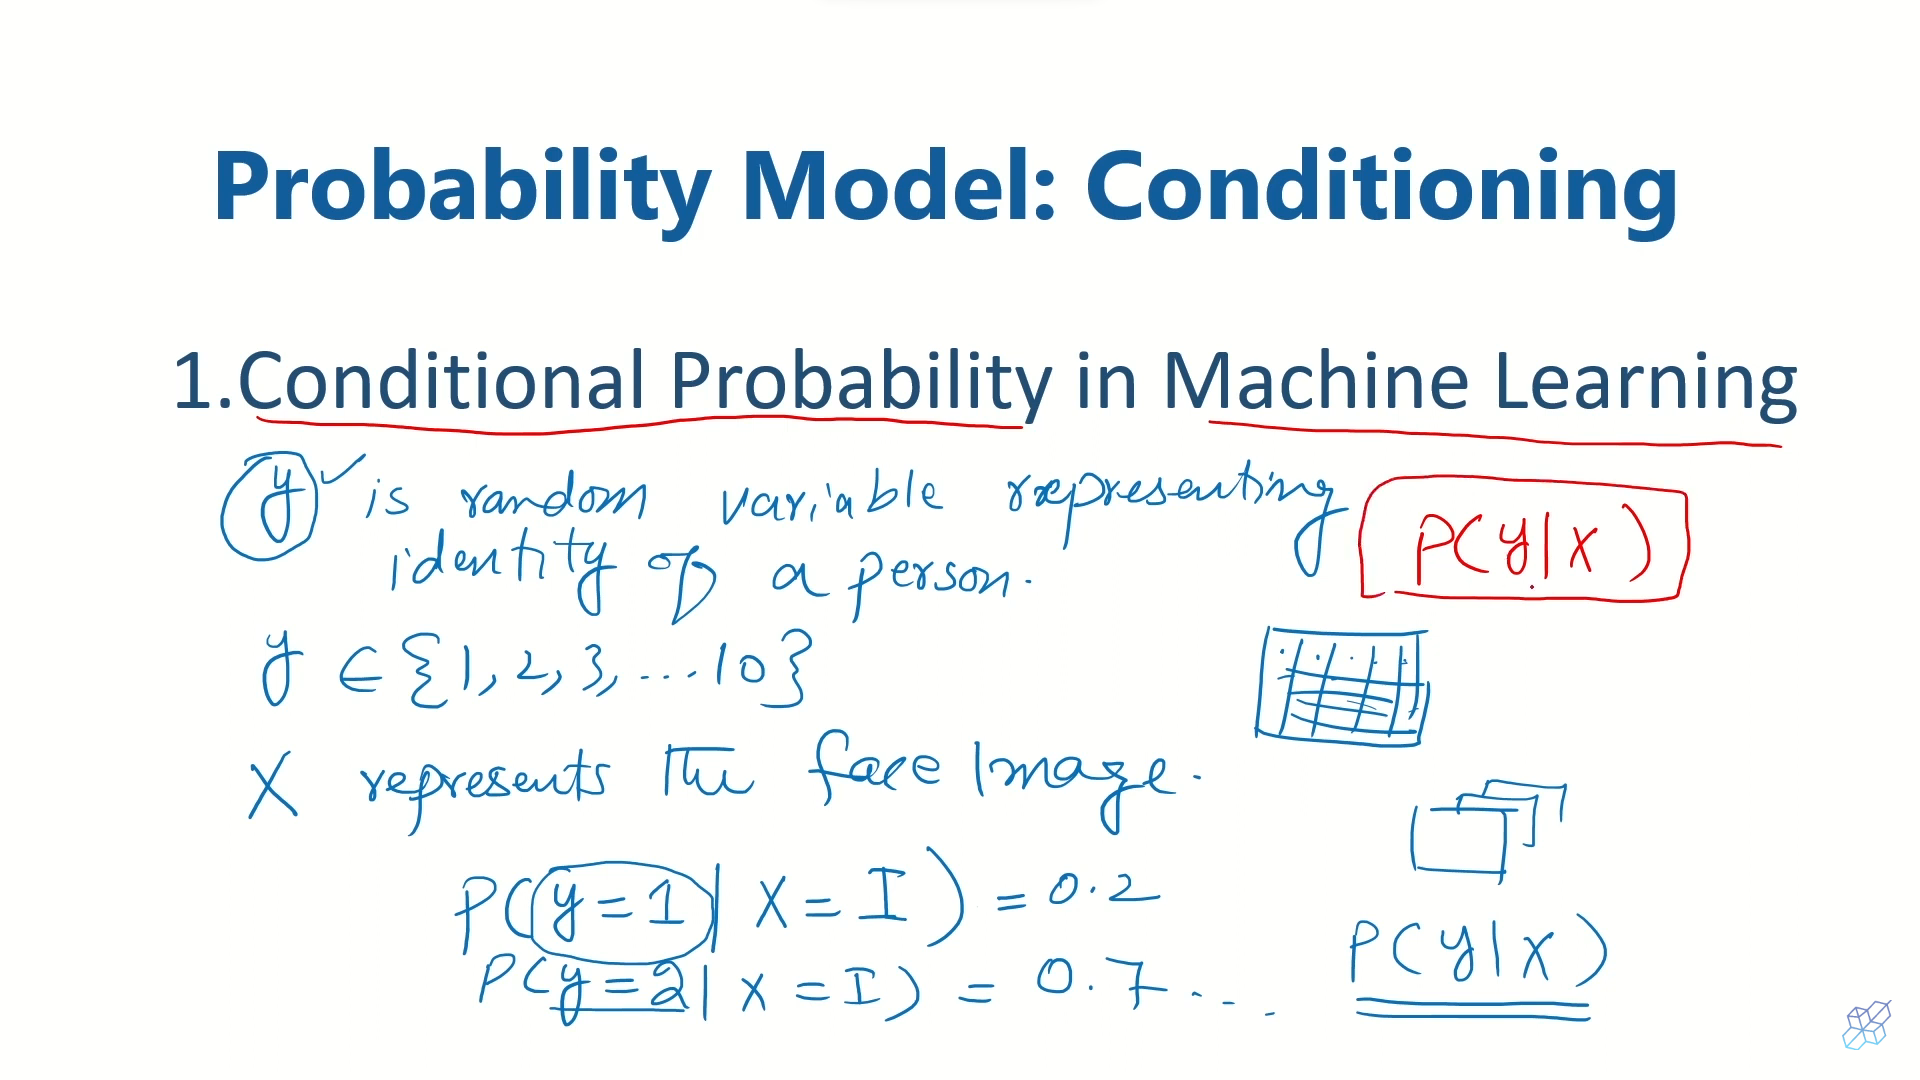 Probability Model: Conditioning
1.Conditional Probability in Machine Learning
y is random variable representing
identity of a person.
P(y|x)
y ∈ {1, 2, 3, ... 10}
X represents the face Image.
P(y=1| X=I) = 0.2
P(y=2| x=I) = 0.7...
P(y|x)